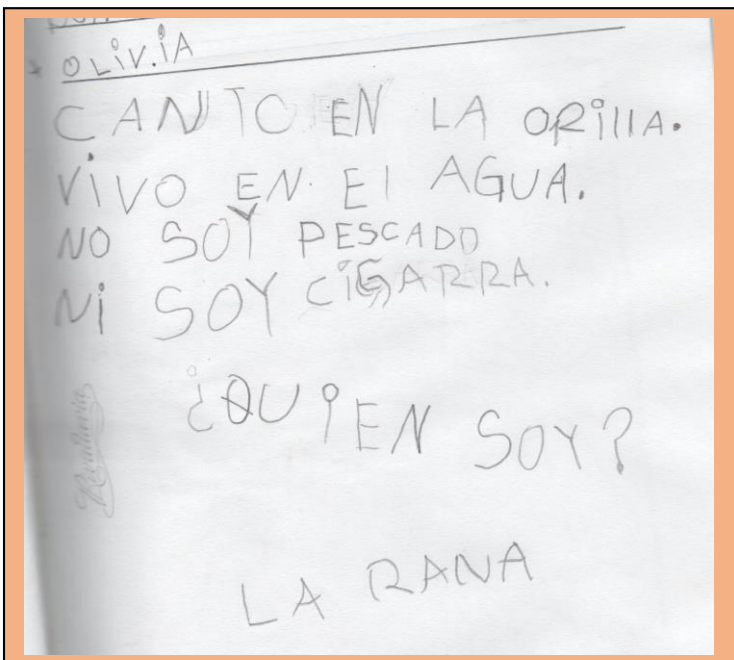 * OLiViA
CANTO EN LA ORillA.
ViVO EN. El AGUA.
NO SOY PESCADO
Ni SOY CiGARRA.
¿QUiEN SOY?
Rivadavia
LA RANA